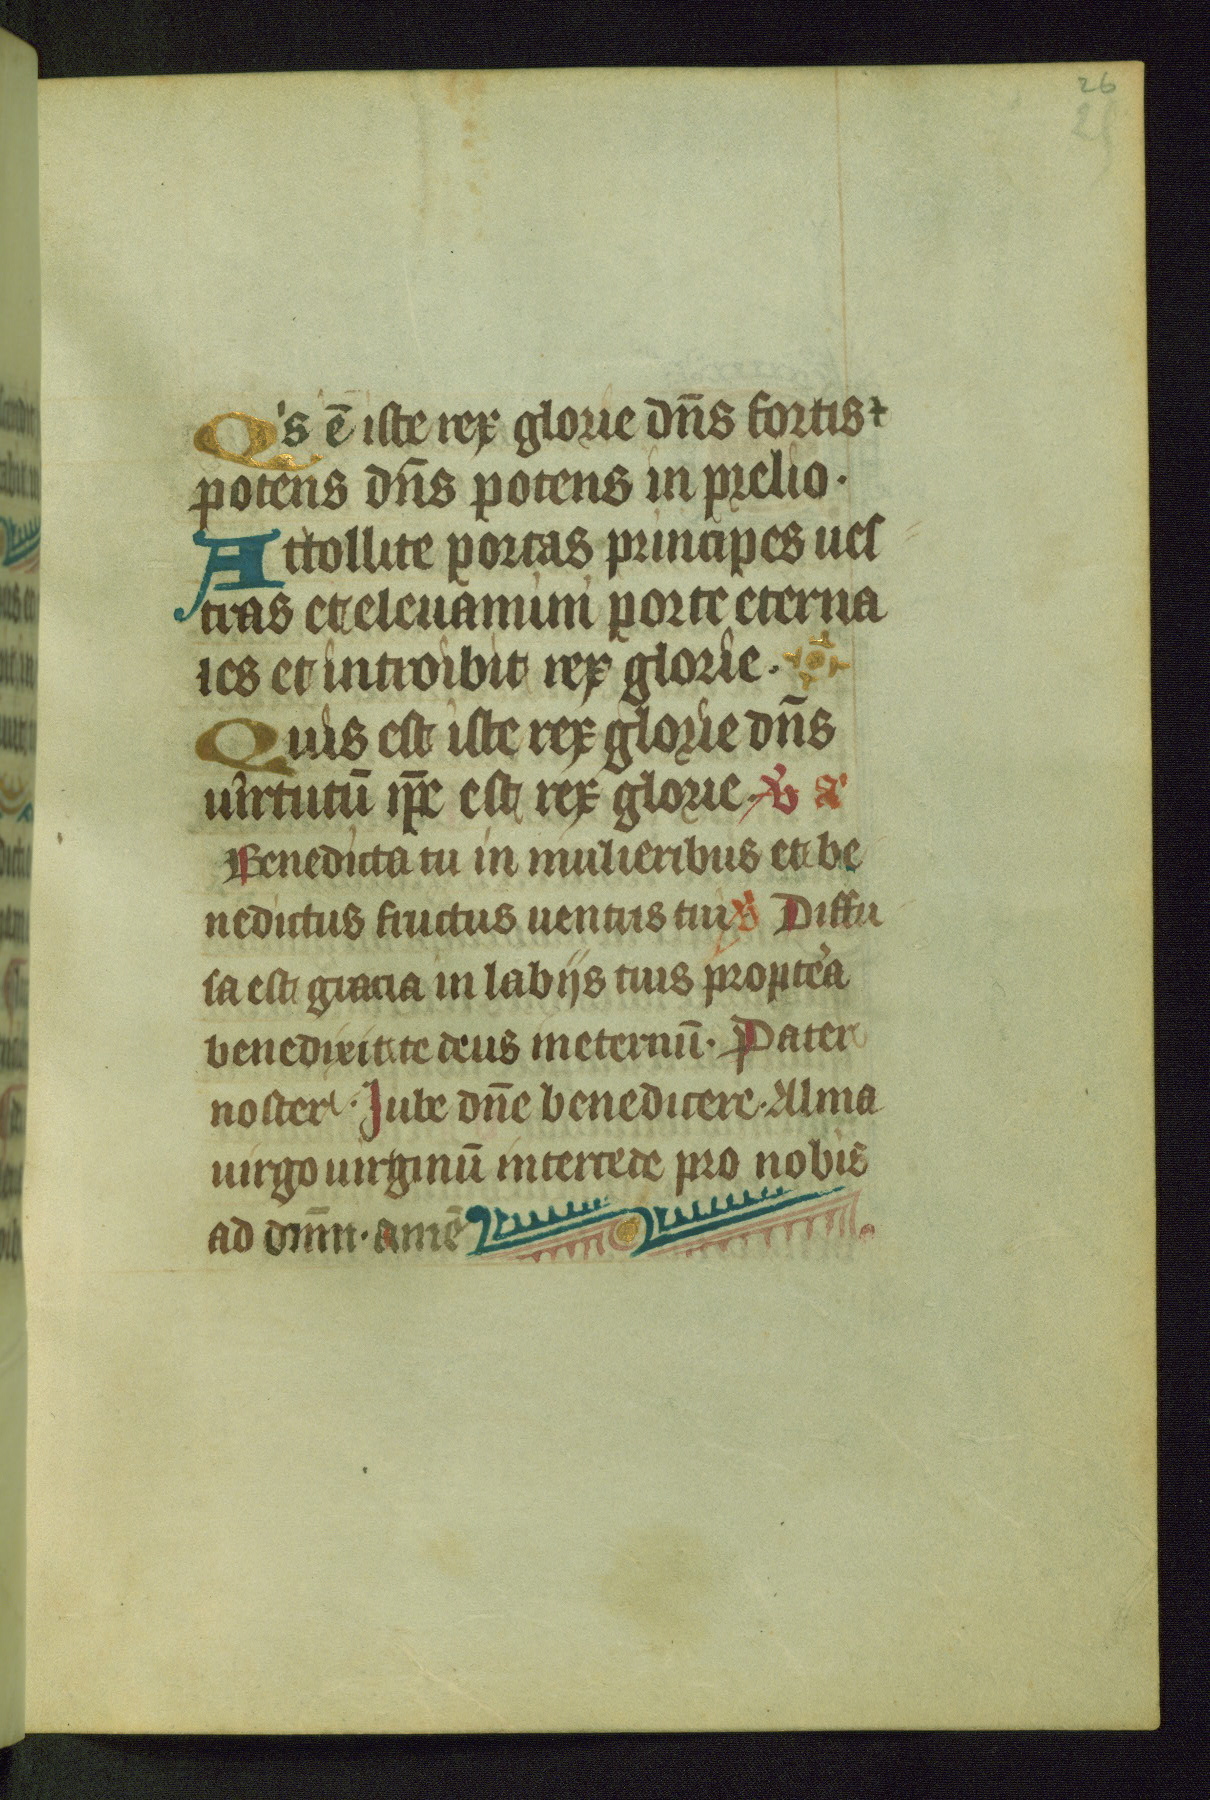 26
25
Qis ē iste rex glorie dn̄s fortis ⁊
potens dn̄s potens in prelio.
Attollite portas principes ues
tras et eleuamini porte eterna
les et introibit rex glorie.
Quis est iste rex glorie dn̄s
uirtutū ip̄e est rex glorie. a
Benedicta tu in mulieribus et be
nedictus fructus uentris tui ℣ Diffu
sa est gracia in labijs tuis propter̕a
benedixit te deus in eternū. Pater
noster. Iube dn̄e benedicere. Alma
uirgo uirginū intercede pro nobis
ad dn̄m. amē